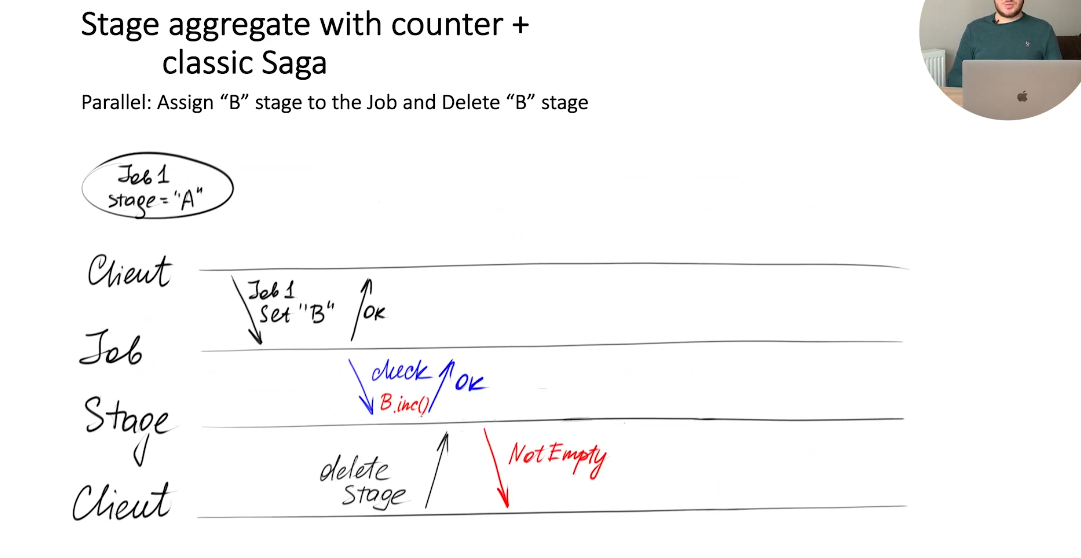 Stage aggregate with counter +
classic Saga
Parallel: Assign “B” stage to the Job and Delete “B” stage
Job 1
stage = "A"
Client
Job 1
Set "B"
OK
Job
check
OK
B.inc()
Stage
Not Empty
delete
Stage
Client